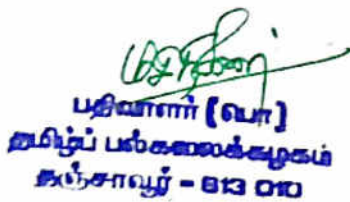 பதிவாளர் (பொ)
தமிழ்ப் பல்கலைக்கழகம்
தஞ்சாவூர் - 613 010